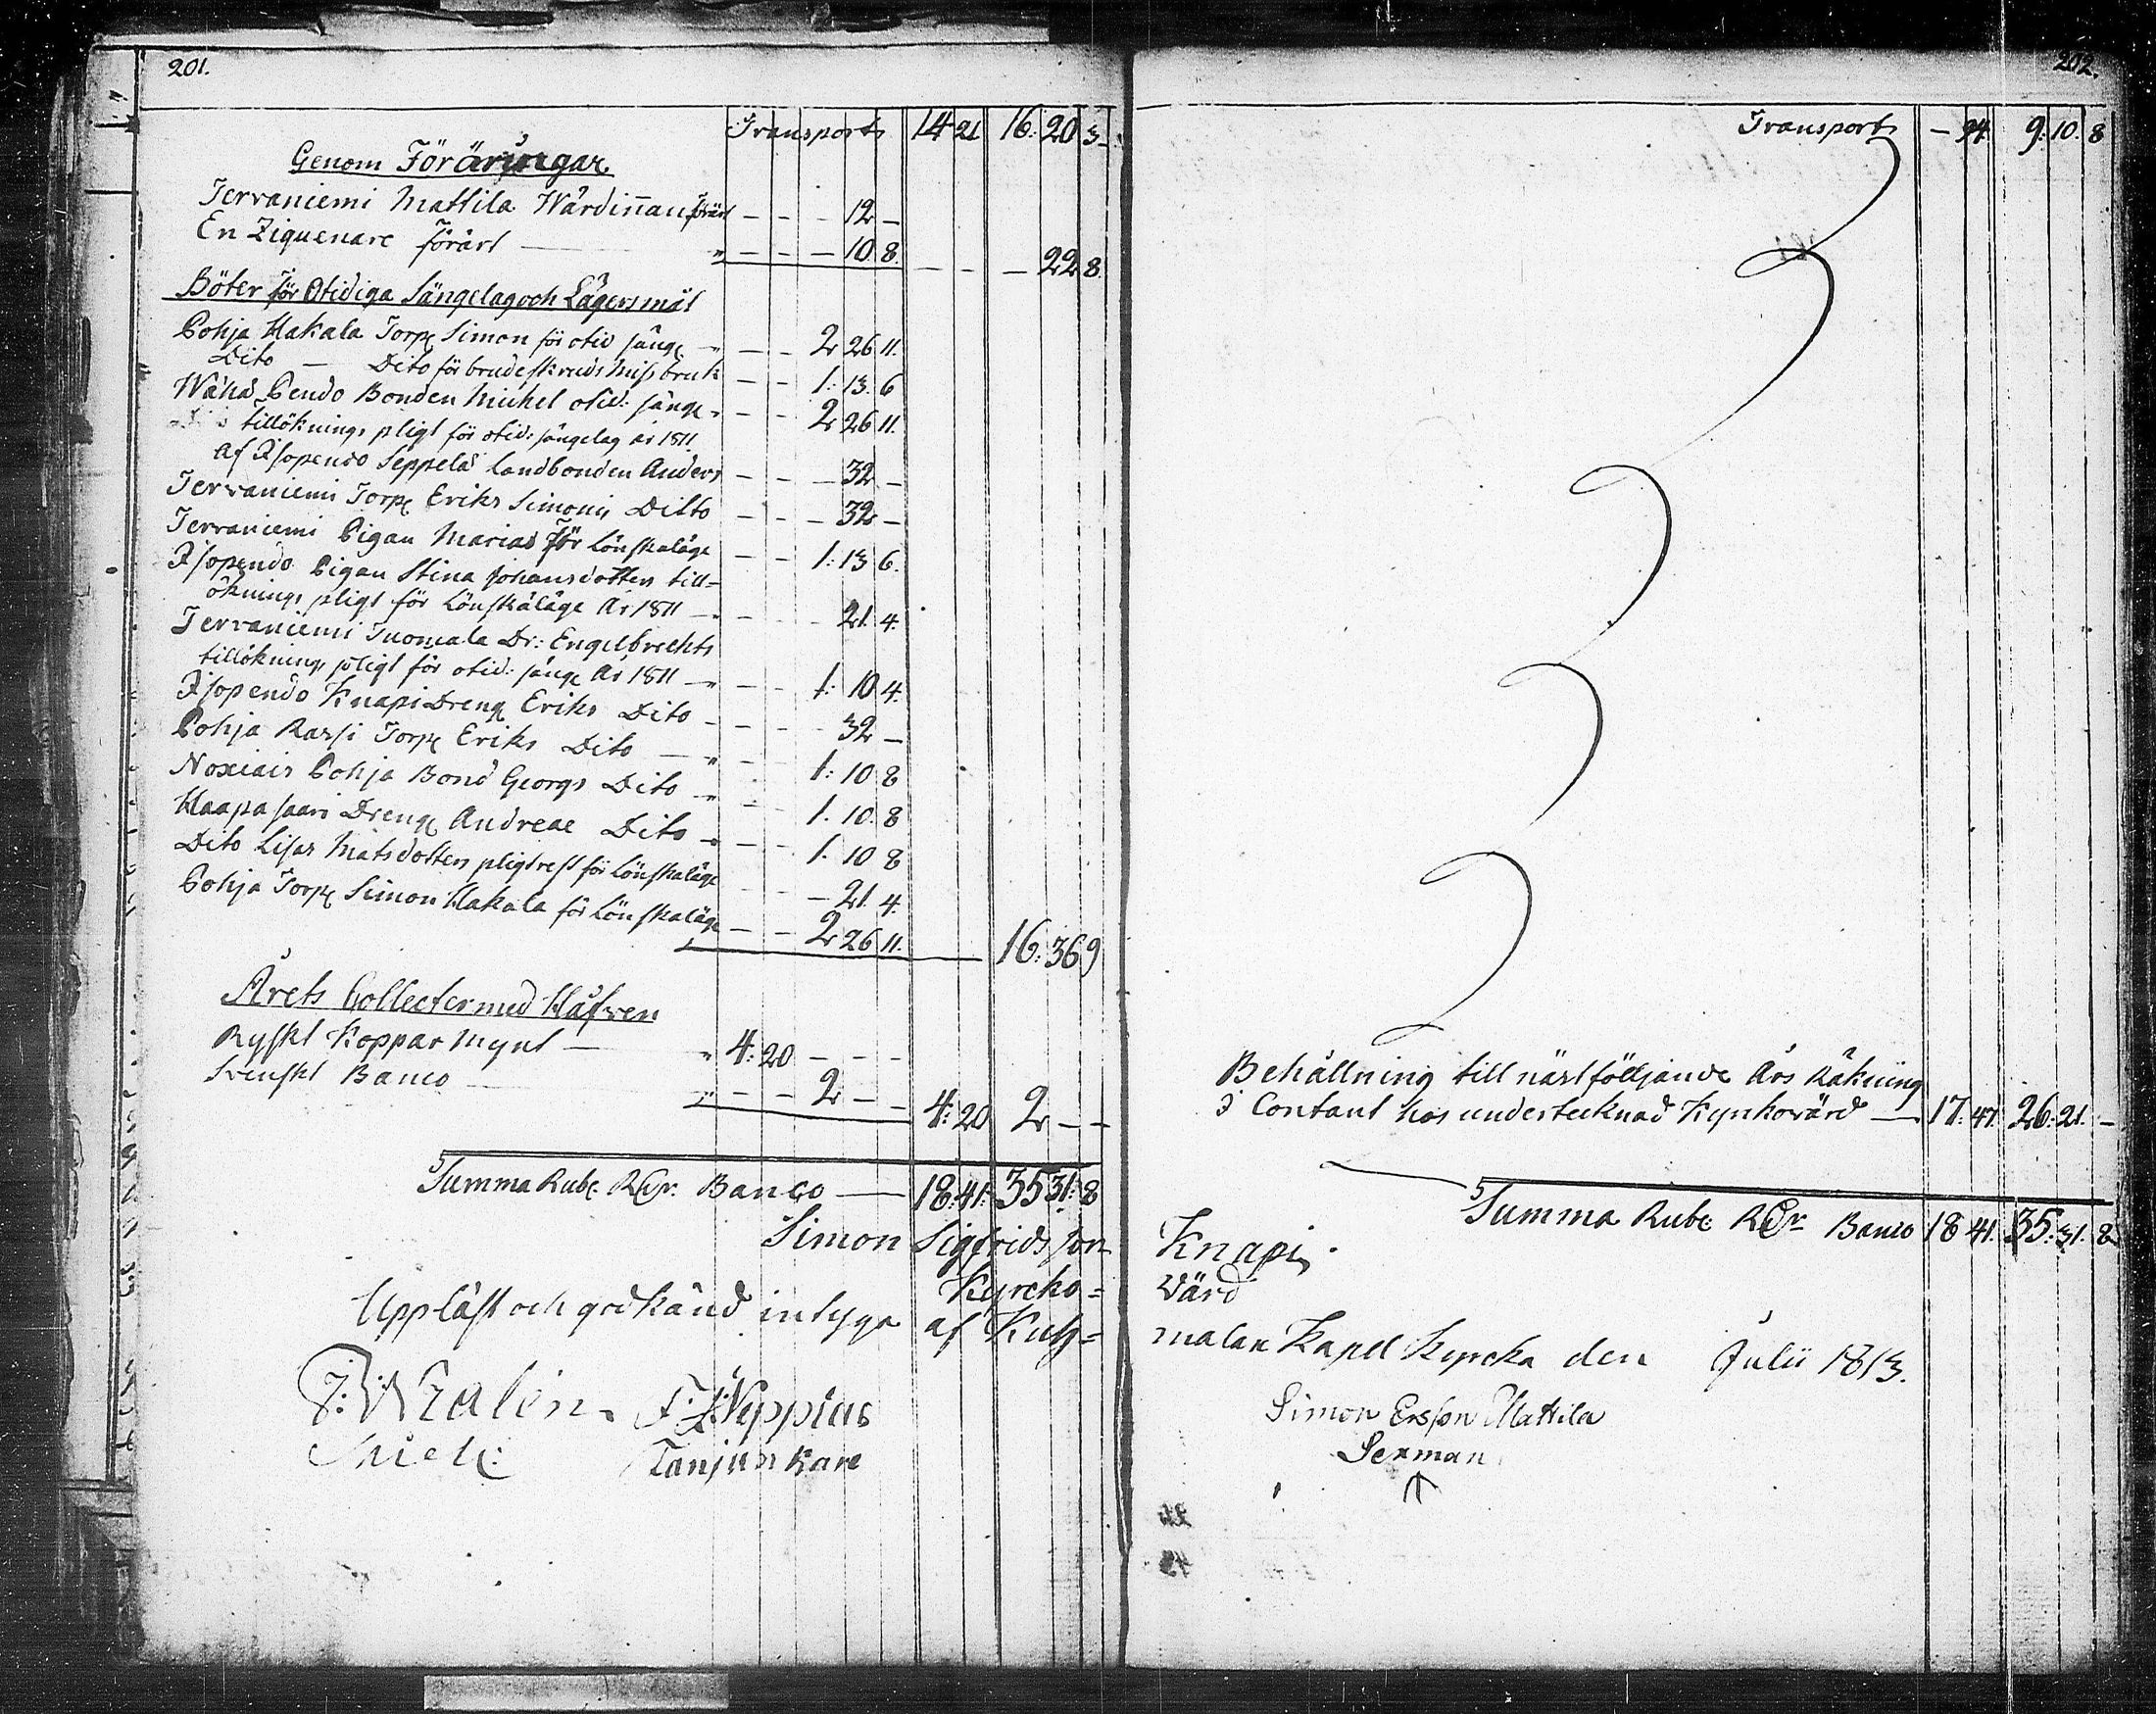 201.
Transport 14 21 16: 20 3
Genom Föräringar
Jervaniemi Mattila Wärdiñan förärt - - - 12 -
En Ziquenare förärt — " - - - 10 8. - - - 22 8.
Böter för Otidiga Sängelag och Lägersmål
Pohja Hakala Torp Simon för otid sänge - - - 2 26 11.
Dito — Dito för brudeskruds missbruk - - 1: 13. 6
Wähä Pendo Bonden Michel otid: sänge - - - 2 26 11.
tillöknings pligt för otid: sängelag år 1811
af Isopendo Seppelä landbonden Anders - - - 32 -
Jervaniemi Torp Eriks Simonis Ditto - - - 32 -
Jervaniemi Pigan Marias För Lönskaläge - - 1: 13 6.
Isopendo Pigan Stina Johansdotters till=
öknings pligt för Lönskaläge År 1811 - - - - 21. 4.
Jervaniemi Tuomala Dr: Engelbrechts
tillöknings pligt för otid: sänge År 1811 - - - 1: 10 4.
Isopendo Knapi Dreng Eriks Dito - - - - 32 -
Pohja Rassi Torp Eriks Dito — " - - 1: 10 8
Pohja Bond Georgs Dito - " - 1. 10. 8
Haapasaari Dreng Andreae Dito - - - 1. 10 8
Dito Lisas Matsdotters pligtrest för Lönskaläge - 21. 4.
Pohja Torp Simon Hakala för Lönskaläge - - 2 26 11. 16: 36 9
Årets Collecter med Håfven
Ryskt Koppar Mynt — " 4: 20 - - -
Svenskt Banco " - - 2 - - 4: 20 2 - -
Summa Rub: RDr. Banco — 18: 41: 35 31: 8
Simon Sigfridsson
Kyrcko=
Uppläst och godkänd intyga af Kuh=
F. Neppius
Tanjunkare
202.
Transport - 94. 9: 10. 8
Behållning till näst följande Års Räkning
i Contant hos undertecknad Kyrkovärd — 17: 47. 26: 21. -
Summa Rub: RDr Banco 18 41. 35: 31. 8
Knapi.
Värd
malax Kapel Kyrcka den Julii 1813.
Simon Ersson Mattila
Sexman